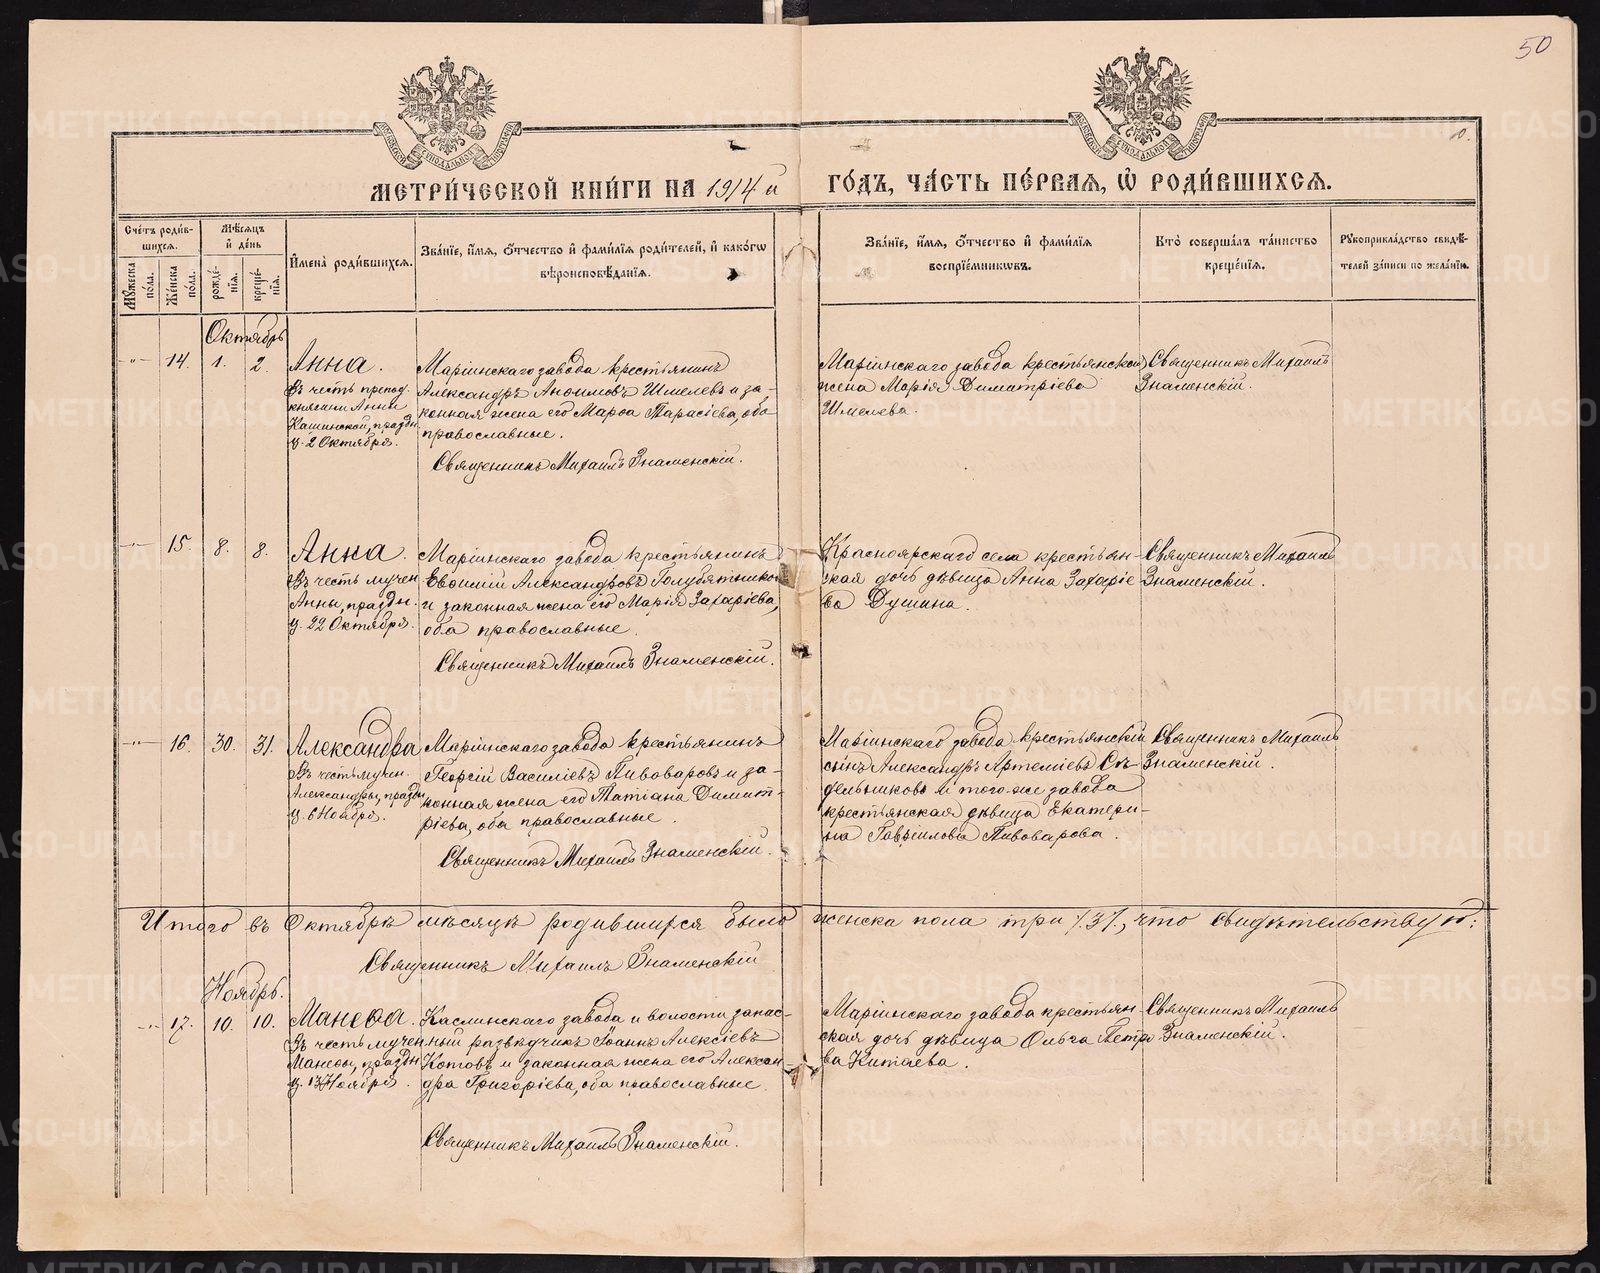 50
МЕТРИ́ЧЕСКОЙ КНИ́ГИ НА 1914 й ГО́ДЪ, ЧА́СТЬ ПЕ́РВАЯ, Ѡ РОДИ́ВШИХСЯ.
Сче́тъ роди́вшихся.
Мѣ́сяцъ и де́нь
Мꙋ́жеска по́ла.
Же́нска по́ла.
рожде́нїѧ.
креще́нїѧ.
Имена̀ роди́вшихся.
Зва́нїе, и́мѧ, о́тчество и фами́лїѧ роди́телей, и како́гѡ
вѣроисповѣ́данїѧ.
Зва́нїе, и́мѧ, о́тчество и фами́лїѧ
воспрїе́мникѡвъ.
Кто̀ соверша́лъ та́инство
креще́нїѧ.
Рꙋкоприкла́дство свидѣ́-
телей за́писи по жела́нїю.
Октябрь
-"- 14. 1. 2.
Анна.
Въ честь препод.
княгини Анны
Кашинской, праздн.
ц. 2 Октября.
Маріинскаго завода крестьянинъ
Александръ Анѳимовъ Шмелевъ и за-
конная жена его Марѳа Тарасіева, оба
православные.
Священникъ Михаилъ Знаменскій.
Маріинскаго завода крестьянская
жена Марія Димитріева
Шмелева.
Священникъ Михаилъ
Знаменскій.
-"- 15. 8. 8.
Анна.
Въ честь мучен.
Анны, праздн.
ц. 22 Октября.
Маріинскаго завода крестьянинъ
Евѳимій Александровъ Голубятников
и законная жена его Марія Захаріева,
оба православные.
Священникъ Михаилъ Знаменскій.
Красноярскаго села крестьян-
ская дочь дѣвица Анна Захаріе
ва Душина.
Священникъ Михаилъ
Знаменскій.
-"- 16. 30. 31.
Александра
Въ честь мучен.
Александры, праздн.
ц. 6 Ноября.
Маріинскаго завода крестьянинъ
Георгій Василіевъ Пивоваровъ и за-
конная жена его Татіана Димит-
ріева, оба православные.
Священникъ Михаилъ Знаменскій.
Маріинскаго завода крестьянскій
сынъ Александръ Артеміевъ Сѣ-
дельниковъ и того-же завода
крестьянская дѣвица Екатери-
на Гавріилова Пивоварова.
Священникъ Михаилъ
Знаменскій.
Итого въ Октябрѣ мѣсяцѣ родившихся было женска пола три /.3/., что свидѣтельствую:
Священникъ Михаилъ Знаменскій
Ноябрь.
-"- 17. 10. 10.
Манеѳа.
Въ честь мучен
Манеѳы, праздн.
ц. 13 Ноября.
Каслинскаго завода и волости запас-
ный развѣдчикъ Іоаннъ Алексіевъ
Котовъ и законная жена его Алексан-
дра Григоріева, оба православные.
Священникъ Михаилъ Знаменскій.
Маріинскаго завода крестьян-
ская дочь дѣвица Ольга Петро
ва Китаева.
Священникъ Михаилъ
Знаменскій.
METRIKI.GASO-URAL.RU